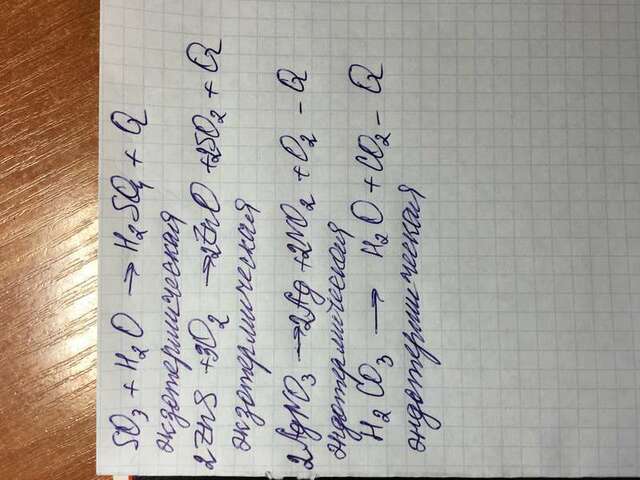 SO₃ + H₂O → H₂SO₄ + Q
экзотермическая
2ZnS + 3O₂ → 2ZnO + 2SO₂ + Q
экзотермическая
2AgNO₃ → 2Ag + 2NO₂ + O₂ - Q
эндотермическая
H₂CO₃ → H₂O + CO₂ - Q
эндотермическая